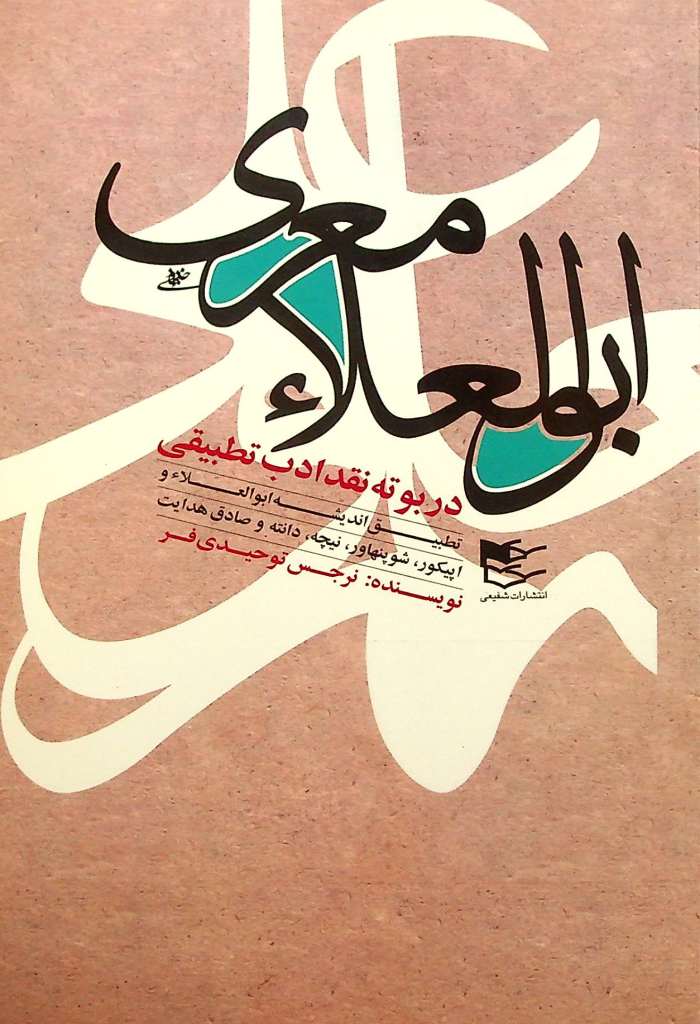 ابوالعلاء
معری
در بوته نقد ادب تطبیقی
تطبیق اندیشه ابوالعلاء و
اپیکور، شوپنهاور، نیچه، دانته و صادق هدایت
نویسنده: نرجس توحیدی فر
انتشارات شفیعی